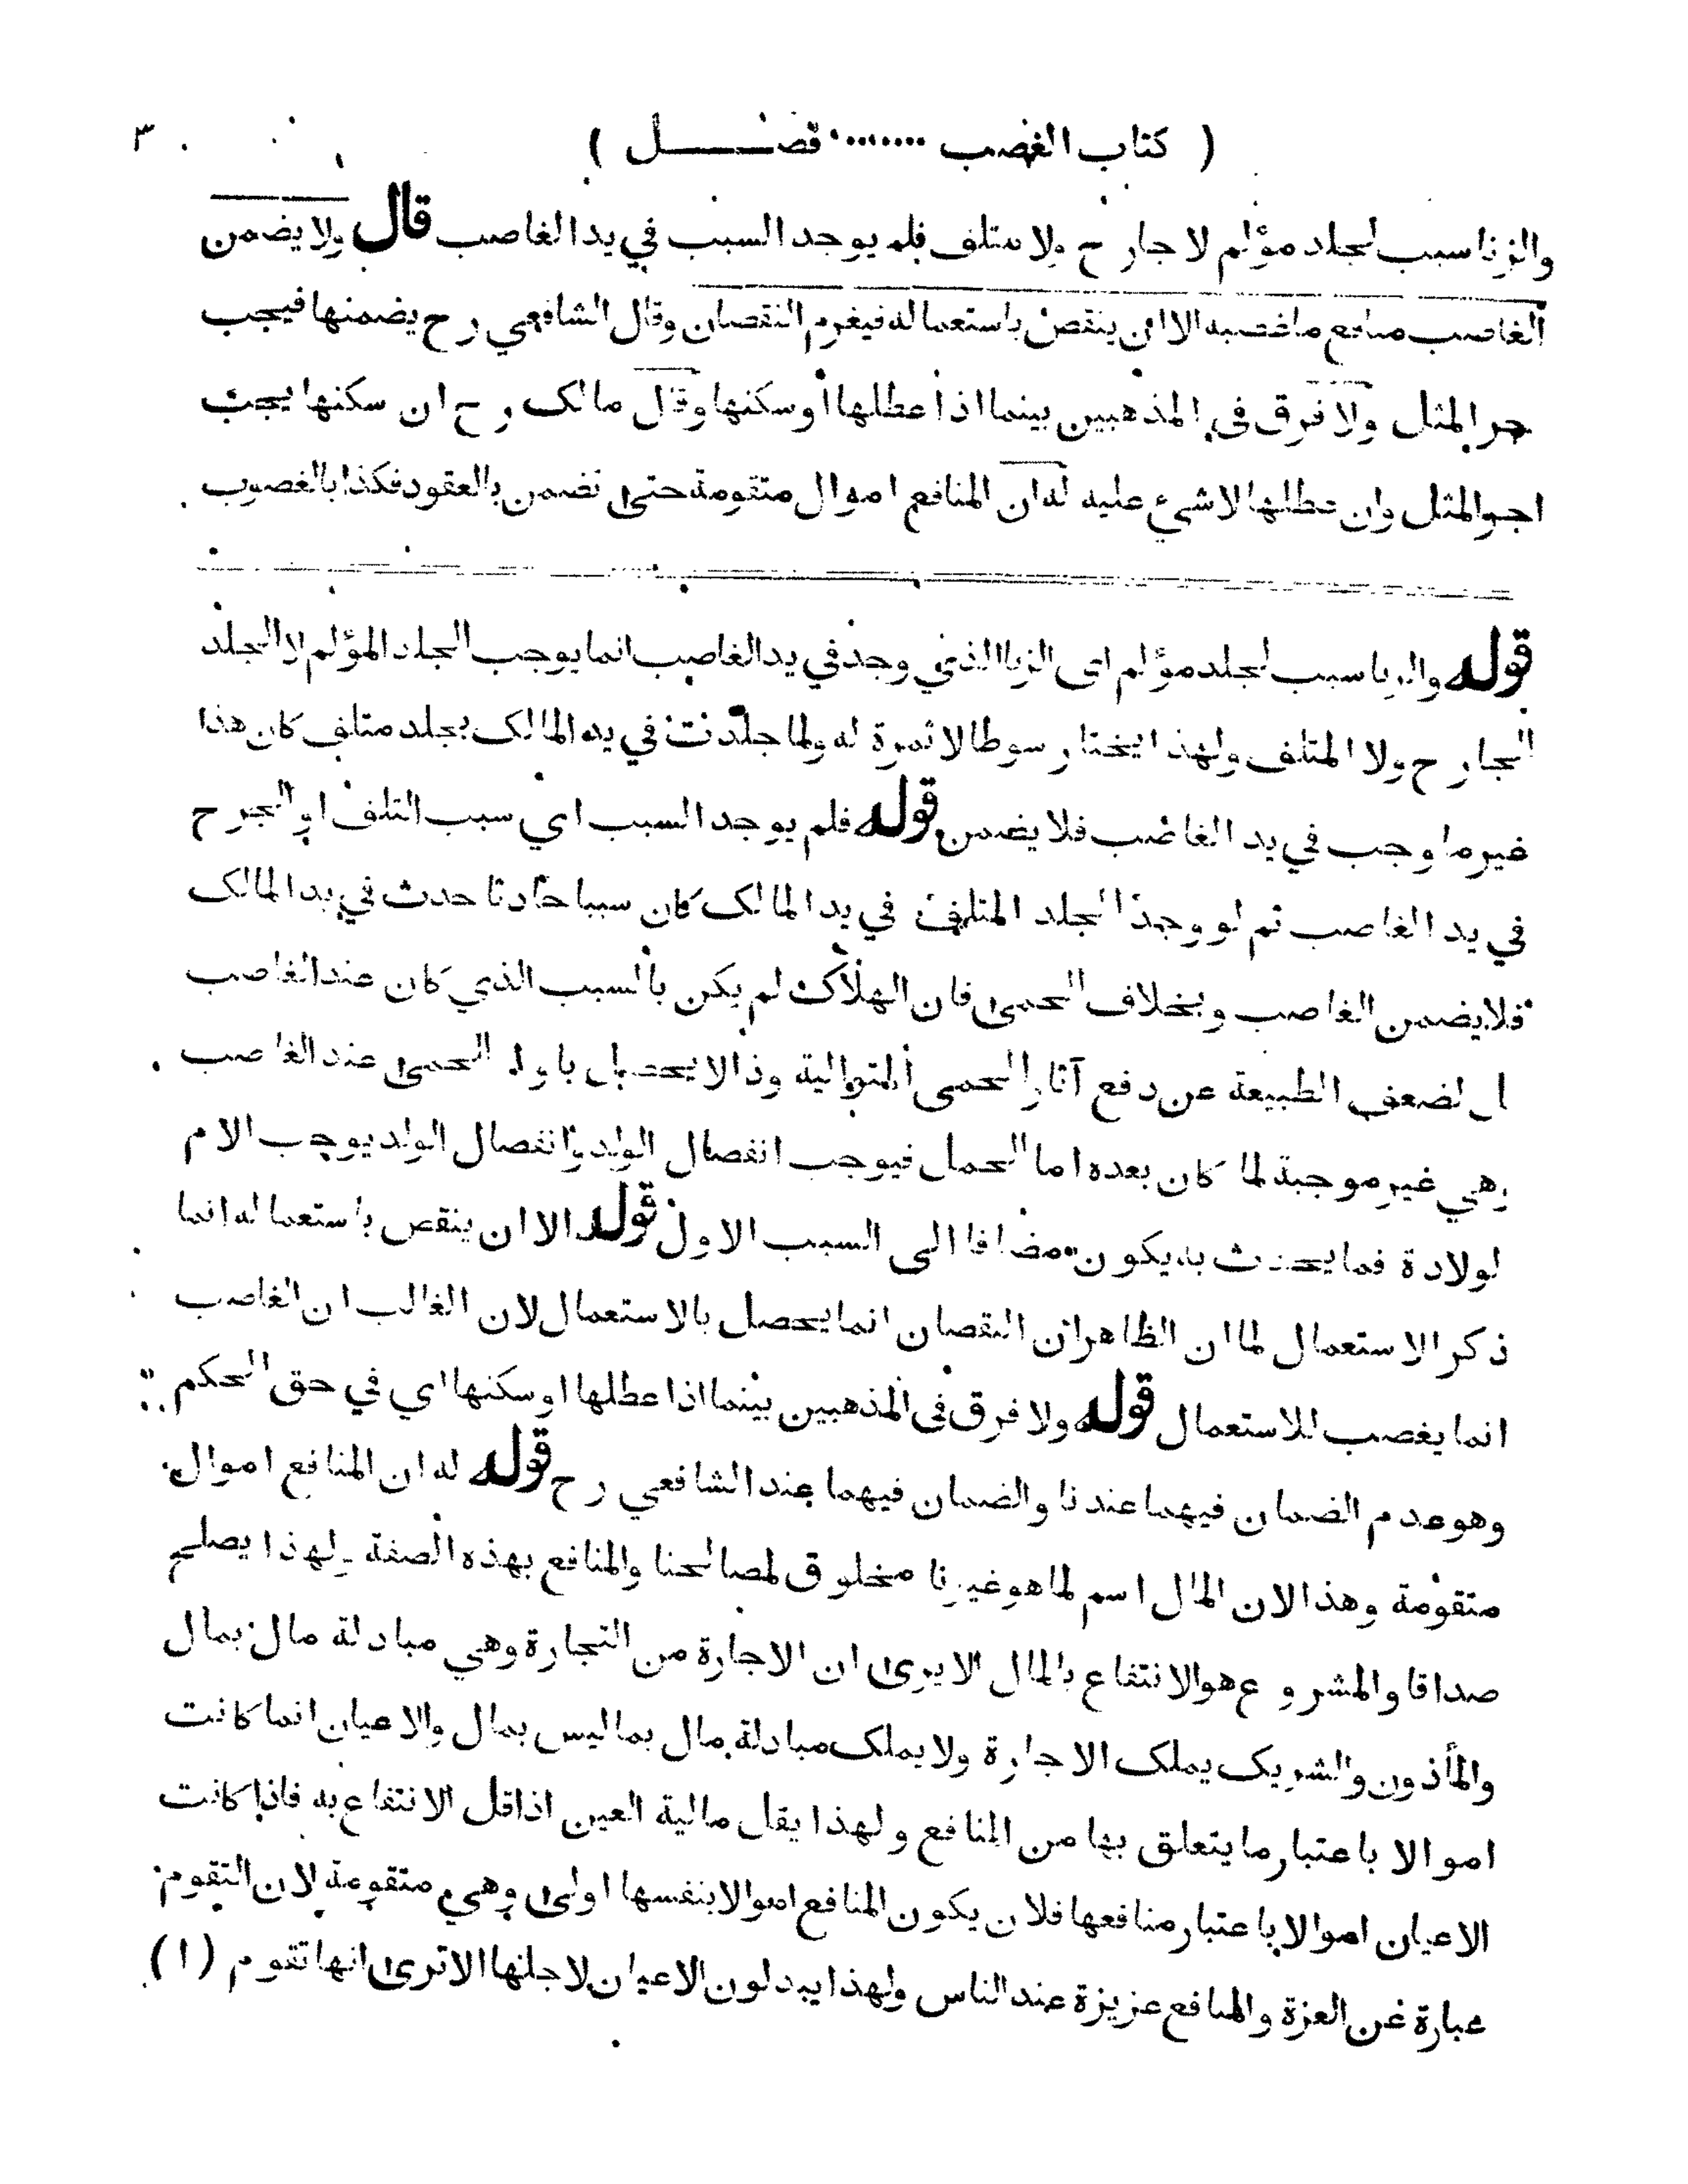 ( كتاب الغصب ....... فصل ) ٣
والزنا سبب لجلد مؤلم لا جارح ولا متلف فلم يوجد السبب في يد الغاصب قال ولا يضمن
الغاصب منافع ما غصبه الا ان ينقص باستعماله فيغرم النقصان وقال الشافعي رح يضمنها فيجب
اجر المثل ولا فرق في المذهبين بينما اذا عطلها او سكنها وقال مالك رح ان سكنها يجب
اجر المثل وان عطلها لا شيء عليه له ان المنافع اموال متقومة حتى تضمن بالعقود فكذا بالغصوب
قوله والزنا سبب لجلد مؤلم اى الزنا الذي وجد في يد الغاصب انما يوجب الجلد المؤلم لا الجلد
الجارح ولا المتلف ولهذا يختار سوطا لا ثمرة له ولما جلدت في يد المالك بجلد متلف كان هذا
غير ما وجب في يد الغاصب فلا يضمن قوله فلم يوجد السبب اي سبب التلف او الجرح
في يد الغاصب ثم لو وجد الجلد المتلف في يد المالك كان سببا حادثا حدث في يد المالك
فلا يضمن الغاصب وبخلاف الحمى فان الهلاك لم يكن بالسبب الذي كان عند الغاصب
بل لضعف الطبيعة عن دفع آثار الحمى المتوالية وذا لا يحصل باول الحمى عند الغاصب
وهي غير موجبة لما كان بعده اما الحمل فيوجب انفصال الولد وانفصال الولد يوجب الام
لولادة فما يحدث به يكون مضافا الى السبب الاول قوله الا ان ينقص باستعماله انما
ذكر الاستعمال لما ان الظاهر ان النقصان انما يحصل بالاستعمال لان الغالب ان الغاصب
انما يغصب للاستعمال قوله ولا فرق في المذهبين بينما اذا عطلها او سكنها اي في حق الحكم
وهو عدم الضمان فيهما عندنا والضمان فيهما عند الشافعي رح قوله له ان المنافع اموال
متقومة وهذا لان المال اسم لما هو غيرنا مخلوق لمصالحنا والمنافع بهذه الصفة ولهذا يصلح
صداقا والمشروع هو الانتفاع بالمال الا يرى ان الاجارة من التجارة وهي مبادلة مال بمال
والمأذون والشريك يملك الاجارة ولا يملك مبادلة مال بما ليس بمال والاعيان انما كانت
اموالا باعتبار ما يتعلق بها من المنافع ولهذا يقل مالية العين اذا قل الانتفاع به فاذا كانت
الاعيان اموالا باعتبار منافعها فلان يكون المنافع اموالا بنفسها اولى وهي متقومة لان التقوم
عبارة عن العزة والمنافع عزيزة عند الناس ولهذا يبدلون الاعيان لاجلها الا ترى انها تقوم (١)